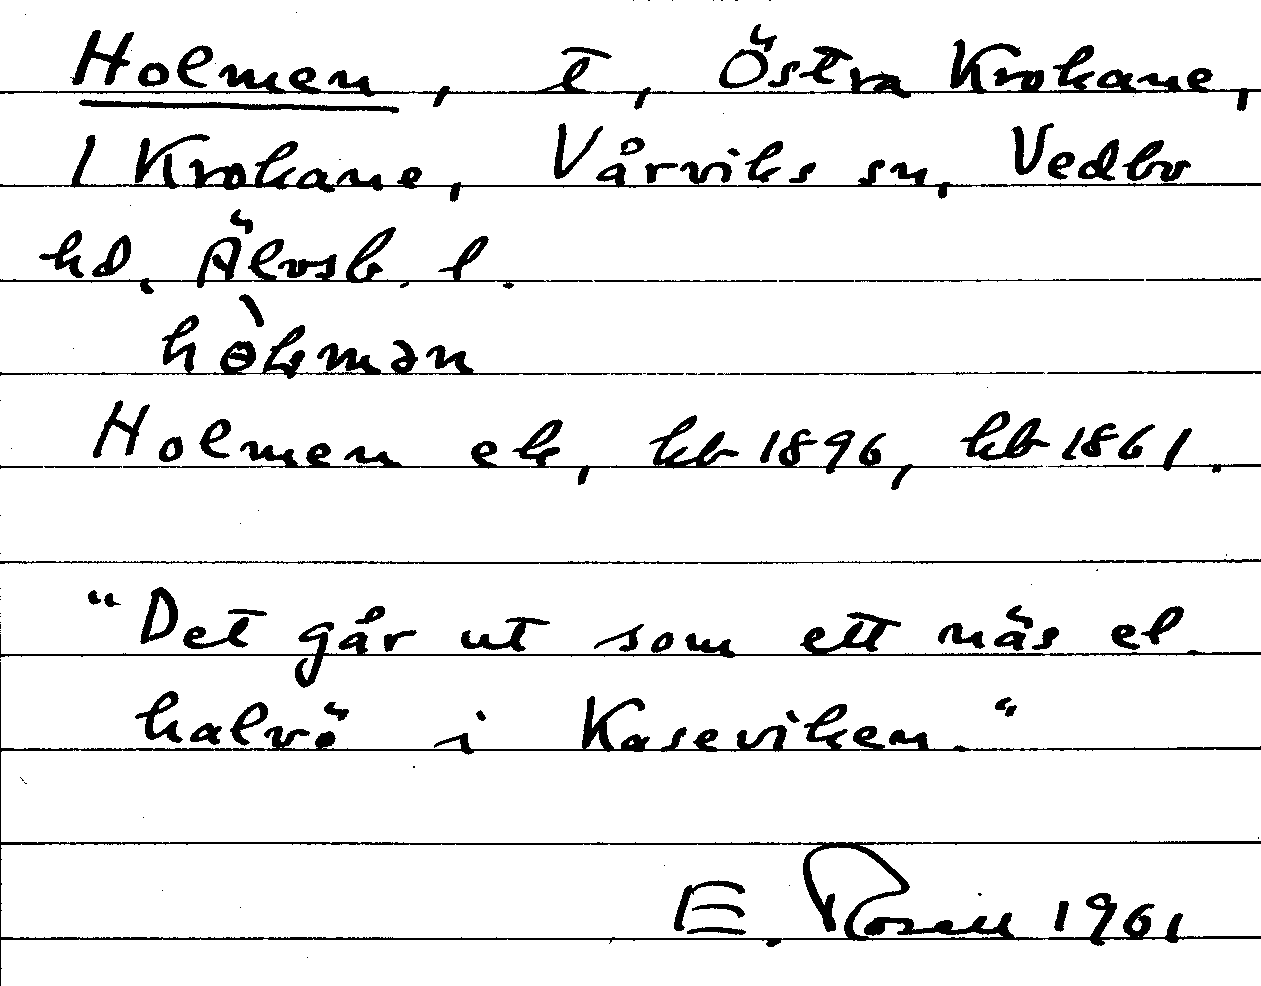 Holmen, t, Östra Krokane,
1 Krokane, Vårviks sn, Vedbo
hd. Älvsb. l.
Holmen ek, kb 1896, kb 1861.
"Det går ut som ett näs el.
halvö i Kaseviken."
E. Rosell 1961